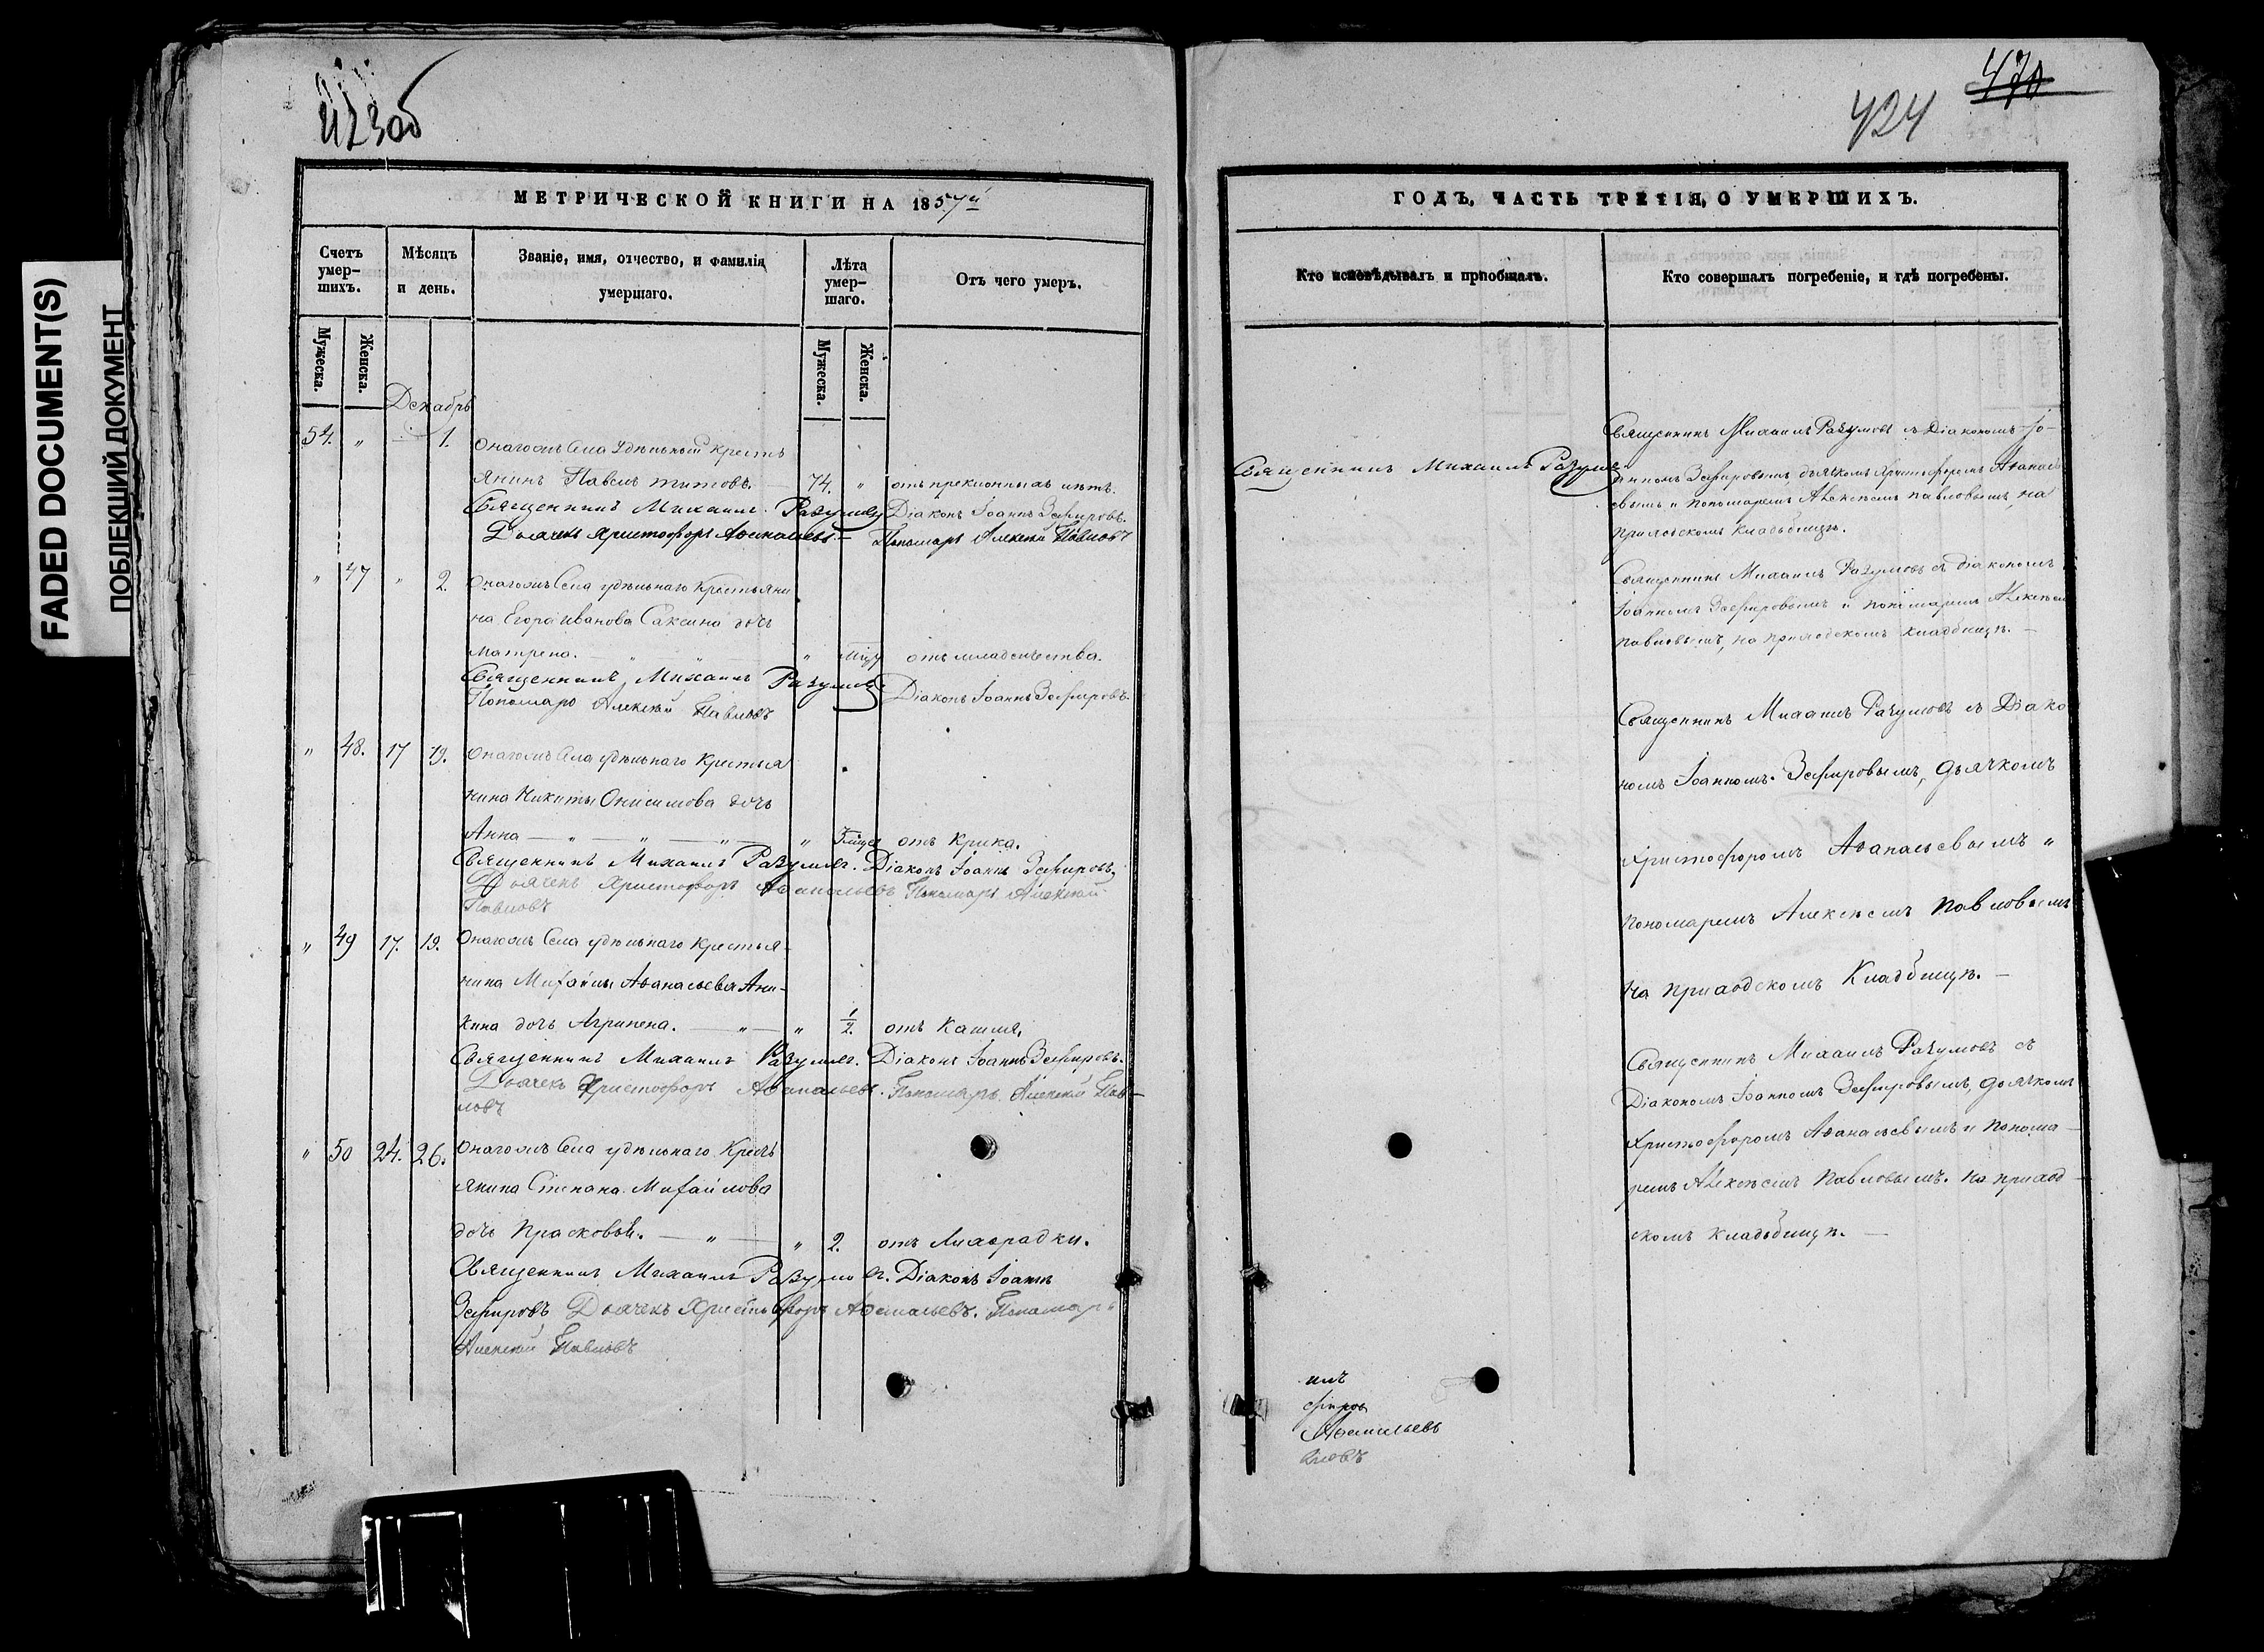 FADED DOCUMENT(S)
ПОБЛЕКШИЙ ДОКУМЕНТ
423об
МЕТРИЧЕСКОЙ КНИГИ НА 1857й
Счетъ умер-
шихъ.
Мѣсяцъ
и день.
Званіе, имя, отчество, и фамилія
умершаго.
Лѣта
умер-
шаго.
Отъ чего умеръ.
Мужеска.
Женска.
Мужеска.
Женска.
Декабрь
54. " 1. Онагожъ Села Удѣльный кресть
янинъ Павелъ Титовъ. 74. " отъ преклонныхъ лѣтъ.
Священникъ Михаилъ Разумовъ Діаконъ Іоаннъ Зефировъ.
Дьячекъ Христофоръ Аѳанасьевъ Пономарь Алексѣй Павловъ
" 47 " 2. Онагожъ Села удѣльнаго Крестьяни
на Егора Иванова Саксина дочь
Матрена. " " " отъ младенчества.
Священникъ Михаилъ Разумовъ Діаконъ Іоаннъ Зефировъ.
Пономарь Алексѣй Павловъ
" 48. 17 19. Онагожъ Села удѣльнаго Крестья
нина Никиты Онисимова дочь
Анна " " " " отъ Крика.
Священникъ Михаилъ Разумовъ. Діаконъ Іоаннъ Зефировъ
Дьячекъ Христофоръ Аѳанасьевъ Пономарь Алексѣй
Павловъ
" 49 17. 19. Онагожъ Села удѣльнаго Крестья-
нина Михайлы Аѳанасьева Ани-
кина дочь Агрипена. " " 1/2. отъ Кашля.
Священникъ Михаилъ Разумовъ. Діаконъ Іоаннъ Зефировъ.
Дьячекъ Христофоръ Аѳанасьевъ. Пономарь Алексѣй Пав-
ловъ
" 50 24. 26. Онагожъ Села удѣльнаго Кресть
янина Степана Михайлова
дочь Прасковья. " " 2. отъ Лихорадки.
Священникъ Михаилъ Разумовъ. Діаконъ Іоаннъ
Зефировъ Дьячекъ Христофоръ Аѳанасьевъ. Пономарь
Алексѣй Павловъ
470
424
ГОДЪ, ЧАСТЬ ТРЕТІЯ, О УМЕРШИХЪ.
Кто исповѣдывалъ и пріобщалъ.
Кто совершалъ погребеніе, и гдѣ погребены.
Священникъ Михаилъ Разумовъ
Священникъ Михаилъ Разумовъ съ Діакономъ Іо-
анномъ Зефировымъ дьячкомъ Христофоромъ Аѳанасье
вымъ и Пономаремъ Алексѣемъ Павловымъ, на
Приходскомъ Кладбищѣ.
Священникъ Михаилъ Разумовъ съ діакономъ
Іоанномъ Зефировымъ и пономаремъ Алексѣем
Павловымъ, на приходскомъ кладбищѣ.
Священникъ Михаилъ Разумовъ съ Діако
номъ Іоанномъ Зефировымъ, дьячкомъ
Христофоромъ Аѳанасьевымъ "
Пономаремъ Алексѣемъ Павловымъ
На приходскомъ Кладбищѣ.
Священникъ Михаилъ Разумовъ съ
Діакономъ Іоанномъ Зефировымъ, дьячкомъ
Христофоромъ Аѳанасьевымъ и Понома-
ремъ Алексѣемъ Павловымъ. на приход-
скомъ кладбищѣ.
илъ
фиров
Аѳанасьевъ
вловъ